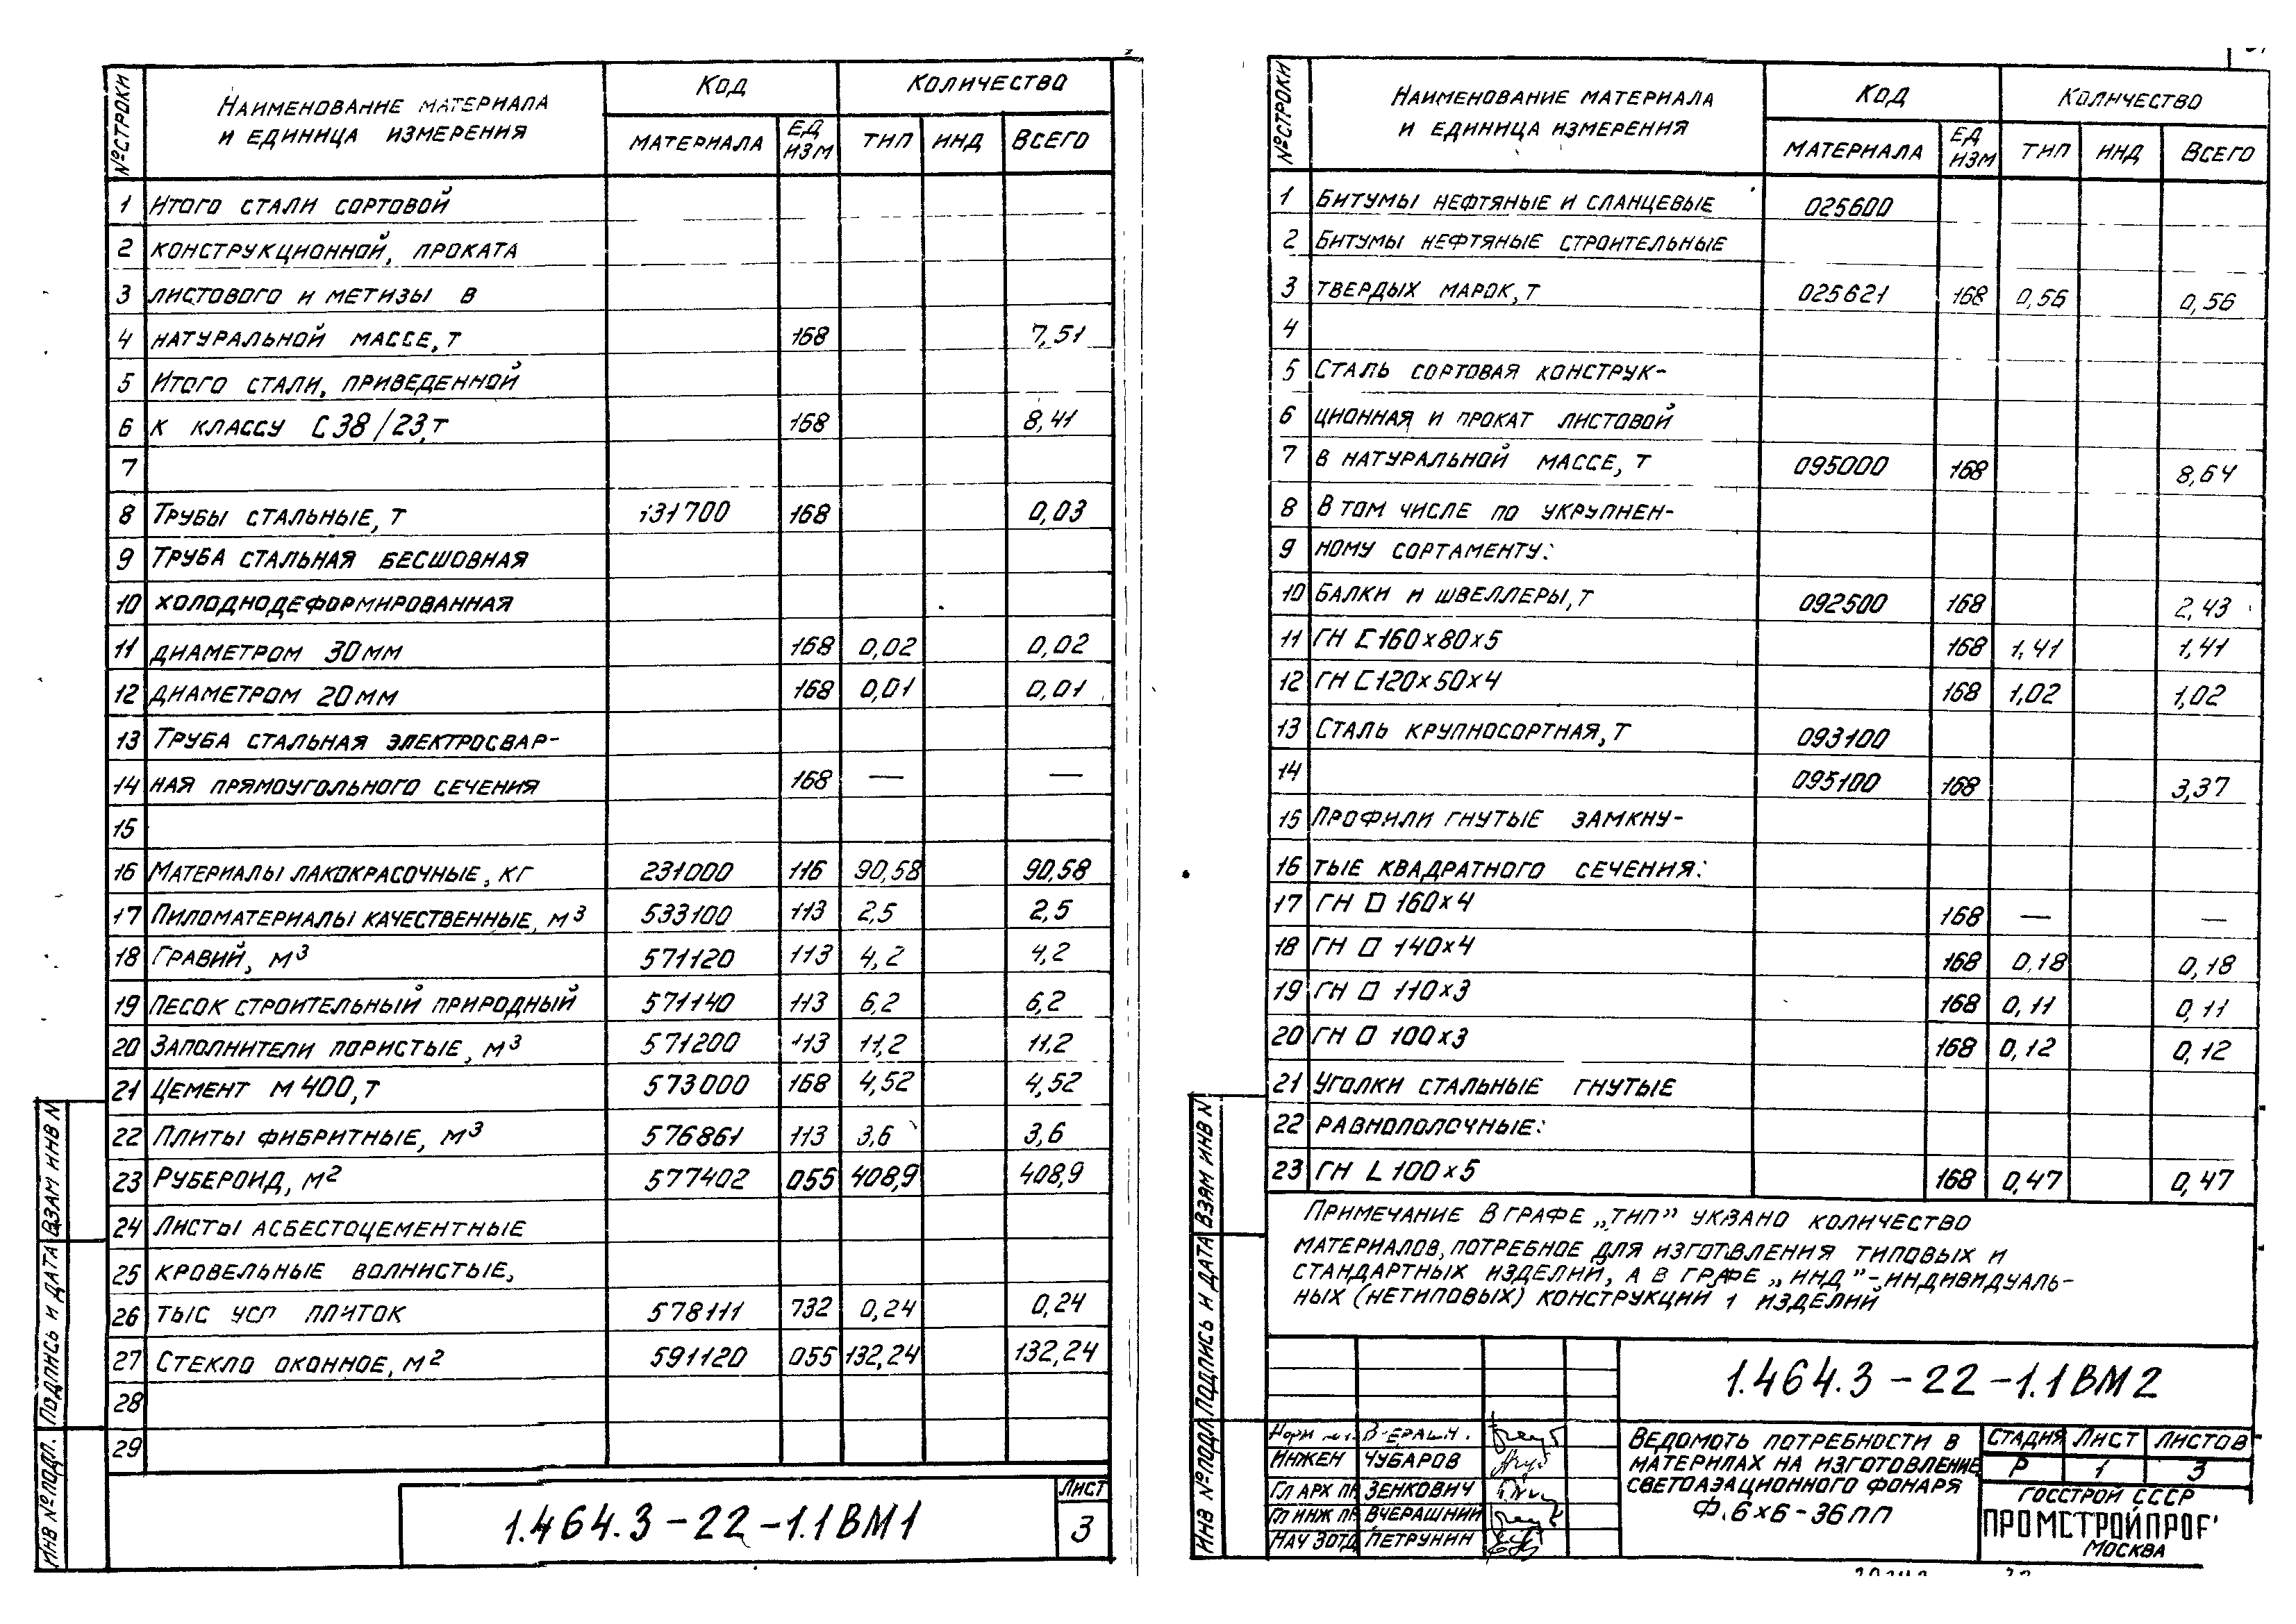 № СТРОКИ | НАИМЕНОВАНИЕ МАТЕРИАЛА И ЕДИНИЦА ИЗМЕРЕНИЯ | КОД | КОЛИЧЕСТВО
МАТЕРИАЛА | ЕД ИЗМ | ТИП | ИНД | ВСЕГО
1 ИТОГО СТАЛИ СОРТОВОЙ
2 КОНСТРУКЦИОННОЙ, ПРОКАТА
3 ЛИСТОВОГО И МЕТИЗЫ В
4 НАТУРАЛЬНОЙ МАССЕ, Т 168 7,51
5 ИТОГО СТАЛИ, ПРИВЕДЕННОЙ
6 К КЛАССУ С 38/23, Т 168 8,41
7
8 ТРУБЫ СТАЛЬНЫЕ, Т 131700 168 0,03
9 ТРУБА СТАЛЬНАЯ БЕСШОВНАЯ
10 ХОЛОДНОДЕФОРМИРОВАННАЯ
11 ДИАМЕТРОМ 30 ММ 168 0,02 0,02
12 ДИАМЕТРОМ 20 ММ 168 0,01 0,01
13 ТРУБА СТАЛЬНАЯ ЭЛЕКТРОСВАР-
14 НАЯ ПРЯМОУГОЛЬНОГО СЕЧЕНИЯ 168 — —
15
16 МАТЕРИАЛЫ ЛАКОКРАСОЧНЫЕ, КГ 231000 116 90,58 90,58
17 ПИЛОМАТЕРИАЛЫ КАЧЕСТВЕННЫЕ, М³ 533100 113 2,5 2,5
18 ГРАВИЙ, М³ 571120 113 4,2 4,2
19 ПЕСОК СТРОИТЕЛЬНЫЙ ПРИРОДНЫЙ 571140 113 6,2 6,2
20 ЗАПОЛНИТЕЛИ ПОРИСТЫЕ, М³ 571200 113 11,2 11,2
21 ЦЕМЕНТ М 400, Т 573000 168 4,52 4,52
22 ПЛИТЫ ФИБРИТНЫЕ, М³ 576861 113 3,6 3,6
23 РУБЕРОИД, М² 577402 055 408,9 408,9
24 ЛИСТЫ АСБЕСТОЦЕМЕНТНЫЕ
25 КРОВЕЛЬНЫЕ ВОЛНИСТЫЕ,
26 ТЫС УСЛ ПЛИТОК 578111 732 0,24 0,24
27 СТЕКЛО ОКОННОЕ, М² 591120 055 132,24 132,24
28
29
ИНВ № ПОДЛ. ПОДПИСЬ И ДАТА ВЗАМ ИНВ N
1.464.3-22-1.1ВМ1
ЛИСТ
3
№ СТРОКИ | НАИМЕНОВАНИЕ МАТЕРИАЛА И ЕДИНИЦА ИЗМЕРЕНИЯ | КОД | КОЛИЧЕСТВО
МАТЕРИАЛА | ЕД ИЗМ | ТИП | ИНД | ВСЕГО
1 БИТУМЫ НЕФТЯНЫЕ И СЛАНЦЕВЫЕ 025600
2 БИТУМЫ НЕФТЯНЫЕ СТРОИТЕЛЬНЫЕ
3 ТВЕРДЫХ МАРОК, Т 025621 168 0,56 0,56
4
5 СТАЛЬ СОРТОВАЯ КОНСТРУК-
6 ЦИОННАЯ И ПРОКАТ ЛИСТОВОЙ
7 В НАТУРАЛЬНОЙ МАССЕ, Т 095000 168 8,64
8 В ТОМ ЧИСЛЕ ПО УКРУПНЕН-
9 НОМУ СОРТАМЕНТУ:
10 БАЛКИ И ШВЕЛЛЕРЫ, Т 092500 168 2,43
11 ГН С 160×80×5 168 1,41 1,41
12 ГН С 120×50×4 168 1,02 1,02
13 СТАЛЬ КРУПНОСОРТНАЯ, Т 093100
14 095100 168 3,37
15 ПРОФИЛИ ГНУТЫЕ ЗАМКНУ-
16 ТЫЕ КВАДРАТНОГО СЕЧЕНИЯ:
17 ГН □ 160×4 168 — —
18 ГН □ 140×4 168 0,18 0,18
19 ГН □ 110×3 168 0,11 0,11
20 ГН □ 100×3 168 0,12 0,12
21 УГОЛКИ СТАЛЬНЫЕ ГНУТЫЕ
22 РАВНОПОЛОЧНЫЕ:
23 ГН L 100×5 168 0,47 0,47
ПРИМЕЧАНИЕ В ГРАФЕ „ТИП" УКАЗАНО КОЛИЧЕСТВО
МАТЕРИАЛОВ, ПОТРЕБНОЕ ДЛЯ ИЗГОТВЛЕНИЯ ТИПОВЫХ И
СТАНДАРТНЫХ ИЗДЕЛИЙ, А В ГРАФЕ „ИНД"-ИНДИВИДУАЛЬ-
НЫХ (НЕТИПОВЫХ) КОНСТРУКЦИЙ И ИЗДЕЛИЙ
ИНВ № ПОДЛ ПОДПИСЬ И ДАТА ВЗАМ ИНВ N
1.464.3-22-1.1ВМ2
ИНЖЕН ЧУБАРОВ
ГЛ АРХ ПР ЗЕНКОВИЧ
ГЛ ИНЖ ПР ВЧЕРАШНИЙ
НАЧ ЗОТД ПЕТРУНИН
ВЕДОМОТЬ ПОТРЕБНОСТИ В
МАТЕРИЛАХ НА ИЗГОТОВЛЕНИЕ
СВЕТОАЭАЦИОННОГО ФОНАРЯ
Ф.6×6-36ПП
СТАДИЯ ЛИСТ ЛИСТОВ
Р 1 3
ГОССТРОЙ СССР
ПРОМСТРОЙПРОЕ
МОСКВА